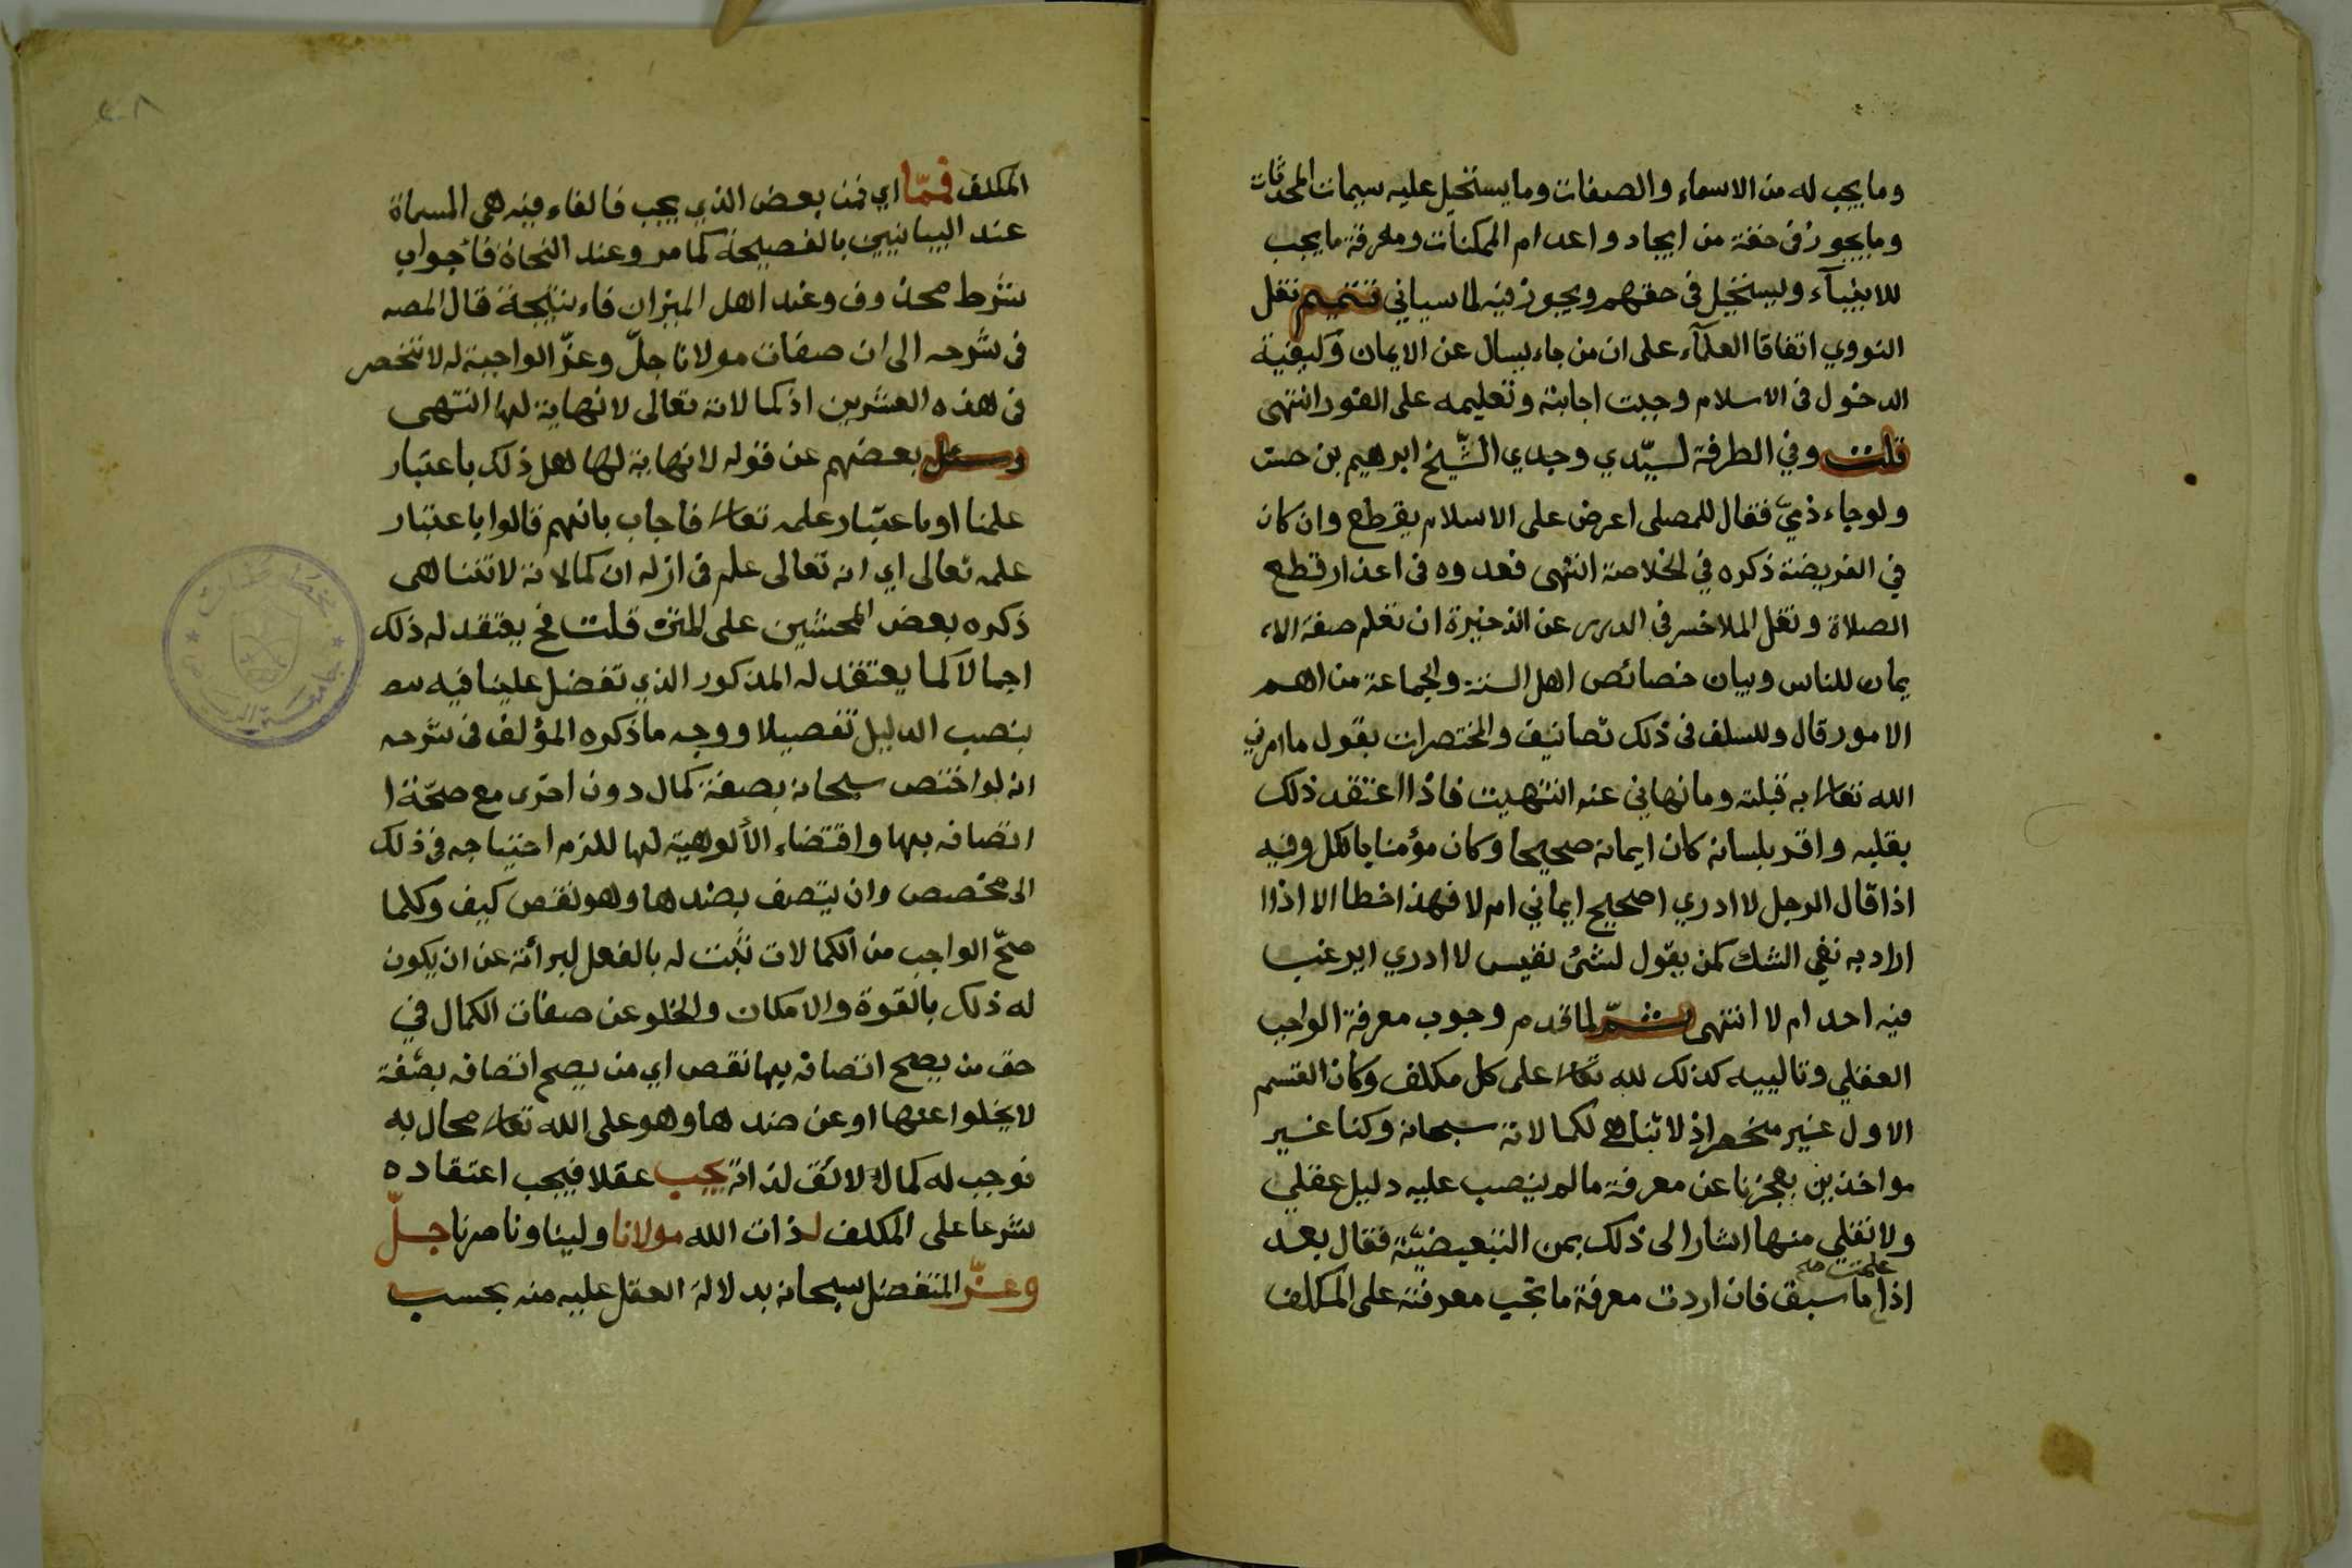 وما يجب له من الاسماء والصفات وما يستحيل عليه سيمات المحدثات
وما يجوز فى حقه من ايجاد واعدام الممكنات ومعرفة ما يجب
للانبيآء ويستحيل فى حقهم ويجوز فيه لما سياتي تتميم نقل
النووي اتفاقا العلمآء على ان من جاء يسال عن الايمان وكيفية
الدخول فى الاسلام وجبت اجابته وتعليمه على الفور انتهى
قلت وفي الطرفة لسيّدي وجدي الشّيخ ابرهيم بن حست
ولو جاء ذميّ فقال للمصلى اعرض على الاسلام يقرطع وان كان
في الفريضة ذكره في الخلاصة انتهى فعدوه فى اعذار قطع
الصلاة ونقل الملاخسر فى الدرر عن الذخيرة ان تعلم صفة الا
يمان للناس وبيان خصائص اهل السنة والجماعة من اهم
الامور قال وللسلف فى ذلك تصانيف والمختصرات يقول ما امرني
الله تعالى به قبلته وما نهاني عنه انتهيت فاذا اعتقد ذلك
بقلبه واقر بلسانه كان ايمانه صحيحا وكان مؤمنا بالكل وفيه
اذا قال الرجل لا ادري اصحيح ايماني ام لا فهذا خطا الا اذاا
اراد به نفي الشك كمن يقول لشئ نفيس لا ادري ايرغب
فيه احد ام لا انتهى ثمّ لما قدم وجوب معرفة الواجب
العقلي وتالييه كذلك لله تعالى على كل مكلف وكان القسم
الاول غير منحصر اذ لا تناهي لكمالاته سبحانه وكنا غير
مواخذين بعجزنا عن معرفة ما لم ينصب عليه دليل عقلي
ولا نقلي منها اشار الى ذلك بمن التبعيضيّة فقال بعد
علمت صح
اذا ما سبق فان اردت معرفة ما تجب معرفته على المكلف
٢٠٨
المكلف فممّا اي فمن بعض الذي يجب فالفاء فيه هى المسماة
عند البيانيين بالفصيحة كما مر وعند النحاة فا جواب
شرط محذوف وعند اهل الميزان فاء نتيجة قال المصه
فى شرحه الى ان صفات مولانا جلّ وعزّ الواجبة له لا تنحصر
فى هذه العشرين اذ كمالاته تعالى لا نهاية لها انتهى
وسئل بعضهم عن قوله لا نهاية لها هل ذلك باعتبار
علمنا او باعتبار علمه تعالى فاجاب بانهم قالوا باعتبار
علمه تعالى اي انه تعالى علم فى ازله ان كمالاته لا تتناهى
ذكره بعض المحشين على المتن قلت فح يعتقد له ذلك
اجمالا كما يعتقد له المذكور الذي تفضل علينا فيه
بنصب الدليل تفصيلا ووجه ما ذكره المؤلف فى شرحه
انه لو اختص سبحانه بصفة كمال دون اخرى مع صحّة ا
اتصافه بها واقتضاء الألوهية لها للزم احتياجه فى ذلك
الى مخصص وان يتصف بضدها وهو نقص كيف وكلما
صحّ الواجب من الكمالات ثبت له بالفعل لبرائة عن ان يكون
له ذلك بالقوة والامكان والخلو عن صفات الكمال في
حق من يصح اتصافه بها نقص اي من يصح اتصافه بصفة
لا يخلوا عنها او عن ضدها وهو على الله تعالى محال به
فوجب له كمال لائق لذاته يجب عقلا فيجب اعتقاده
شرعا على المكلف لذات الله مولانا ولينا وناصرنا جلّ
وعزّ المتفضل سبحانه بدلالة العقل عليه منه بحسب